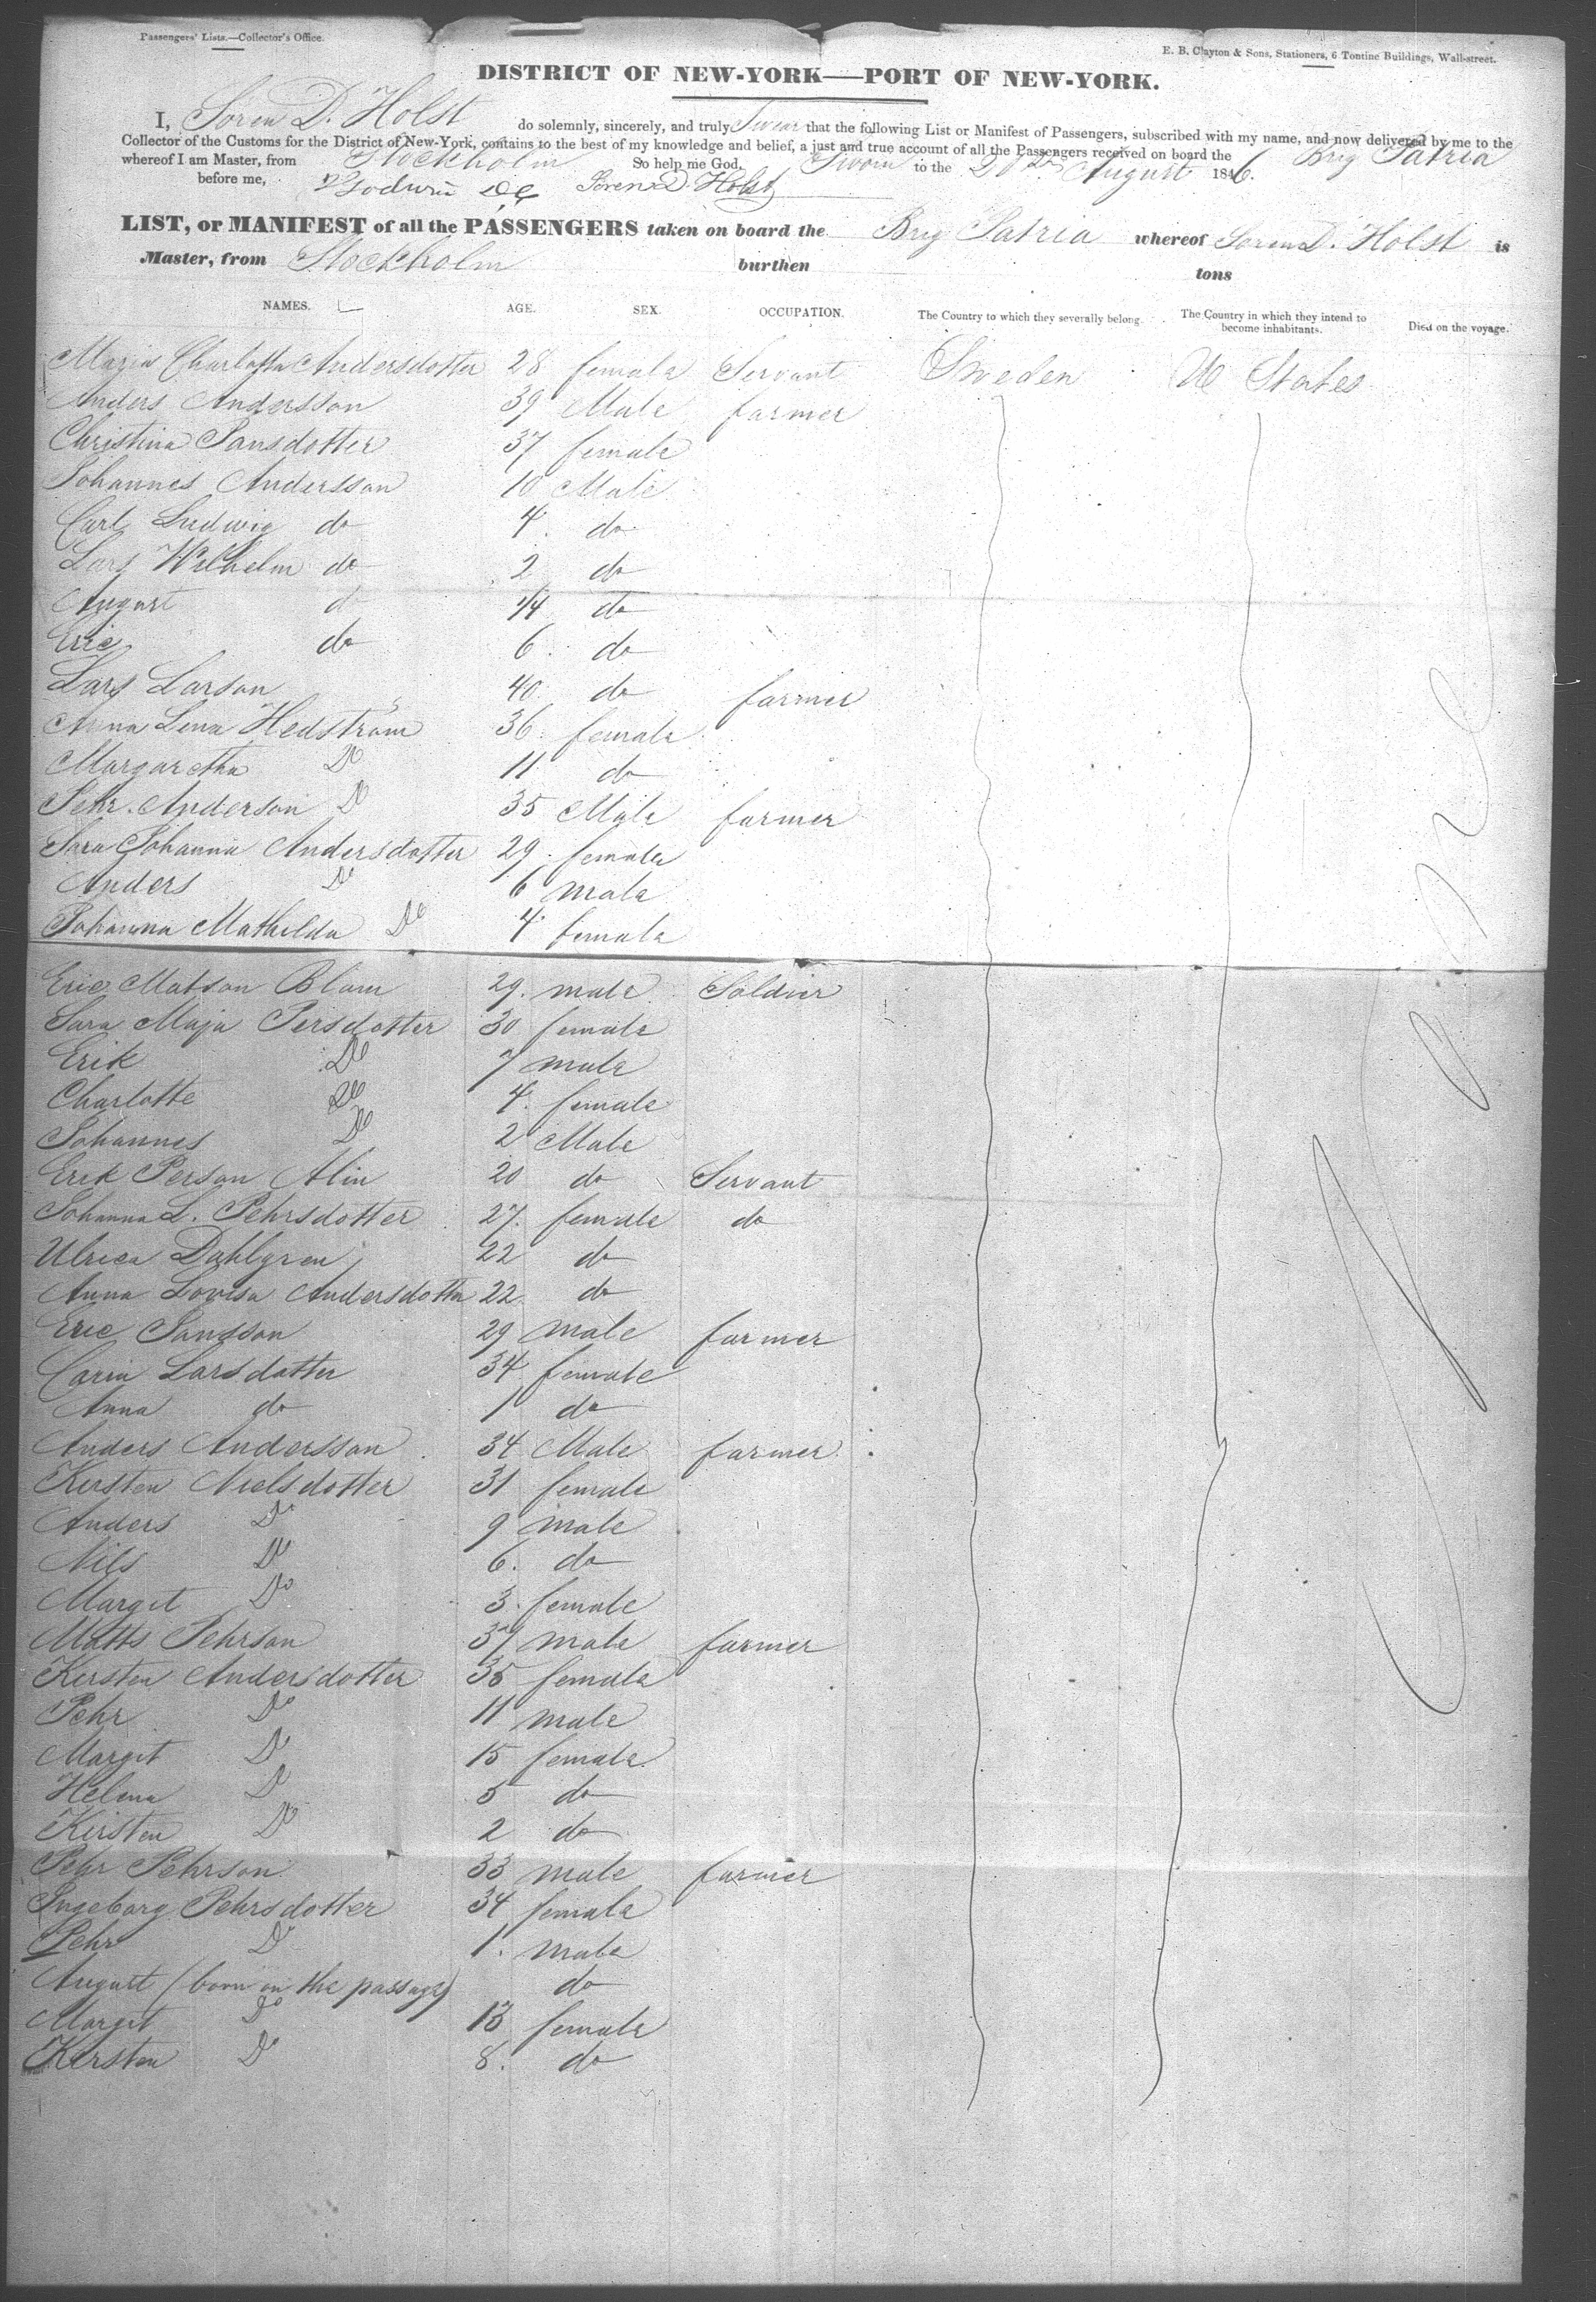 Passengers' Lists.—Collector's Office.
E. B. Clayton & Sons, Stationers, 6 Tontine Buildings, Wall-street.
DISTRICT OF NEW-YORK—PORT OF NEW-YORK.
I, Sören D. Holst do solemnly, sincerely, and truly Swear that the following List or Manifest of Passengers, subscribed with my name, and now delivered by me to the
Collector of the Customs for the District of New-York, contains to the best of my knowledge and belief, a just and true account of all the Passengers received on board the Brig Patria
whereof I am Master, from Stockholm So help me God. Sworn to the 20th August 1846.
before me, Sören D. Holst
LIST, or MANIFEST of all the PASSENGERS taken on board the Brig Patria whereof Sören D. Holst is
Master, from Stockholm burthen tons
NAMES. AGE. SEX. OCCUPATION. The Country to which they severally belong. The Country in which they intend to become inhabitants. Died on the voyage.
Maria Charlotta Andersdotter 28 female Servant Sweden U States
Anders Andersson 39 Male farmer
Christina Jansdotter 37 female
Johannes Andersson 10 Male
Carl Ludwig do 4 do
Lars Wilhelm do 2 do
August do 1/4 do
Eric do 6 do
Lars Larson 40 do farmer
Anna Lena Hedström 36 female
Margaretha Do 11 do
Pehr Anderson Do 35 Male farmer
Sara Johanna Andersdotter 29 female
Anders Do 6 male
Johanna Mathilda Do 4 female
Eric Matson Blom 29 male Soldier
Sara Maja Persdotter 30 female
Erik Do 7 male
Charlotte Do 4 female
Johannes Do 2 Male
Erik Person Alin 20 do Servant
Johanna L. Pehrsdotter 27 female do
Ulrica Dahlgren 22 do
Anna Lovisa Andersdotter 22 do
Eric Jansson 29 male farmer
Carin Larsdotter 34 female
Anna do 1 do
Anders Andersson 34 Male farmer
Kersten Nielsdotter 31 female
Anders Do 9 male
Nils Do 6 do
Margit Do 3 female
Matts Pehrson 37 male farmer
Kersten Andersdotter 35 female
Pehr Do 11 male
Margit Do 15 female
Helena Do 5 do
Kirsten Do 2 do
Pehr Pehrson 33 male farmer
Ingeborg Pehrsdotter 34 female
Pehr Do 1 male
August (born on the passage) do
Margit Do 13 female
Kersten Do 8 do